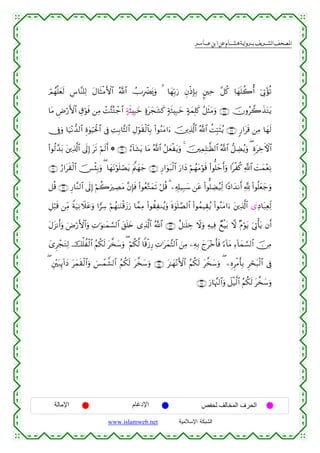 المصحف الشريف برواية هشام عن ابن عامر
تُؤْتِىٓ أُكُلَهَا كُلَّ حِينٍۭ بِإِذْنِ رَبِّهَا ۗ وَيَضْرِبُ ٱللَّهُ ٱلْأَمْثَالَ لِلنَّاسِ لَعَلَّهُمْ
يَتَذَكَّرُونَ ۝ وَمَثَلُ كَلِمَةٍ خَبِيثَةٍ كَشَجَرَةٍ خَبِيثَةٍ ٱجْتُثَّتْ مِن فَوْقِ ٱلْأَرْضِ مَا
لَهَا مِن قَرَارٍ ۝ يُثَبِّتُ ٱللَّهُ ٱلَّذِينَ ءَامَنُوا۟ بِٱلْقَوْلِ ٱلثَّابِتِ فِى ٱلْحَيَوٰةِ ٱلدُّنْيَا وَفِى
ٱلْءَاخِرَةِ ۖ وَيُضِلُّ ٱللَّهُ ٱلظَّـٰلِمِينَ ۚ وَيَفْعَلُ ٱللَّهُ مَا يَشَآءُ ۝ ۞ أَلَمْ تَرَ إِلَى ٱلَّذِينَ بَدَّلُوا۟
نِعْمَتَ ٱللَّهِ كُفْرًا وَأَحَلُّوا۟ قَوْمَهُمْ دَارَ ٱلْبَوَارِ ۝ جَهَنَّمَ يَصْلَوْنَهَا ۖ وَبِئْسَ ٱلْقَرَارُ ۝
وَجَعَلُوا۟ لِلَّهِ أَندَادًا لِّيُضِلُّوا۟ عَن سَبِيلِهِۦ ۗ قُلْ تَمَتَّعُوا۟ فَإِنَّ مَصِيرَكُمْ إِلَى ٱلنَّارِ ۝ قُل
لِّعِبَادِى ٱلَّذِينَ ءَامَنُوا۟ يُقِيمُوا۟ ٱلصَّلَوٰةَ وَيُنفِقُوا۟ مِمَّا رَزَقْنَـٰهُمْ سِرًّا وَعَلَانِيَةً مِّن قَبْلِ
أَن يَأْتِىَ يَوْمٌ لَّا بَيْعٌ فِيهِ وَلَا خِلَـٰلٌ ۝ ٱللَّهُ ٱلَّذِى خَلَقَ ٱلسَّمَـٰوَٰتِ وَٱلْأَرْضَ وَأَنزَلَ
مِنَ ٱلسَّمَآءِ مَآءً فَأَخْرَجَ بِهِۦ مِنَ ٱلثَّمَرَٰتِ رِزْقًا لَّكُمْ ۖ وَسَخَّرَ لَكُمُ ٱلْفُلْكَ لِتَجْرِىَ
فِى ٱلْبَحْرِ بِأَمْرِهِۦ ۖ وَسَخَّرَ لَكُمُ ٱلْأَنْهَـٰرَ ۝ وَسَخَّرَ لَكُمُ ٱلشَّمْسَ وَٱلْقَمَرَ دَآئِبَيْنِ ۖ
وَسَخَّرَ لَكُمُ ٱلَّيْلَ وَٱلنَّهَارَ ۝
الحرف المخالف لحفص الإدغام الإمالة
الشبكة الإسلامية www.islamweb.net